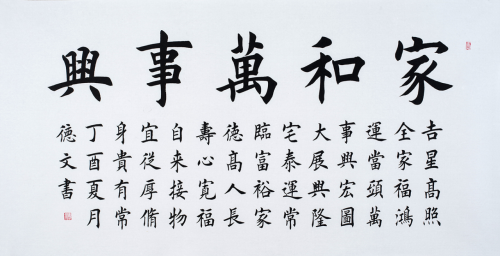 家和萬事興
吉星高照
全家福鴻
運當頭萬
事興宏圖
大展興隆
宅泰運常
臨富裕家
德高人長
壽心寬福
自來接物
宜從厚脩
身貴有常
丁酉夏月
德文書